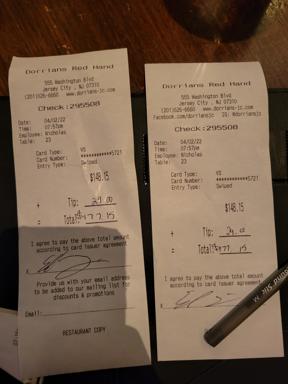 Dorrians Red Hand
555 Washington Blvd
Jersey City , NJ 07310
(201)626-6660 www.dorrians-jc.com
Check:295508
Date: 04/02/22
Time: 07:57pm
Employee: Nicholas
Table: 23
Card Type: VS
Card Number: ************5721
Entry Type: Swiped
$148.15
+ Tip: 29.00
= Total: $177.15
I agree to pay the above total amount
according to card issuer agreement.
x
Provide us with your email address
to be added to our mailing list for
discounts & promotions
Email:
RESTAURANT COPY
Dorrians Red Hand
555 Washington Blvd
Jersey City , NJ 07310
(201)626-6660 www.dorrians-jc.com
Facebook.com/dorriansjc IG: @dorriansjc
Check:295508
Date: 04/02/22
Time: 07:57pm
Employee: Nicholas
Table: 23
Card Type: VS
Card Number: ************5721
Entry Type: Swiped
$148.15
+ Tip: 29.00
= Total: $177.15
I agree to pay the above total amount
according to card issuer agreement.
x